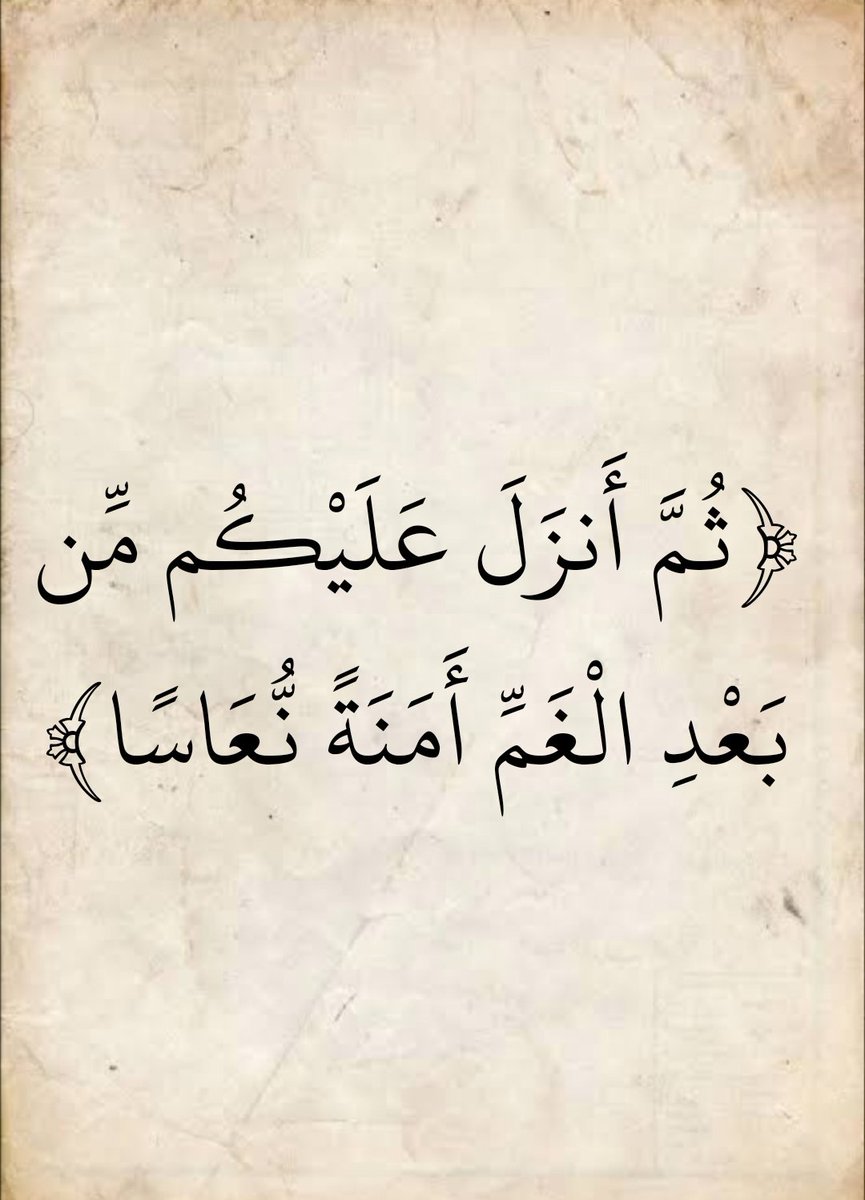 ﴿ثُمَّ أَنزَلَ عَلَيْكُم مِّن
بَعْدِ الْغَمِّ أَمَنَةً نُّعَاسًا﴾